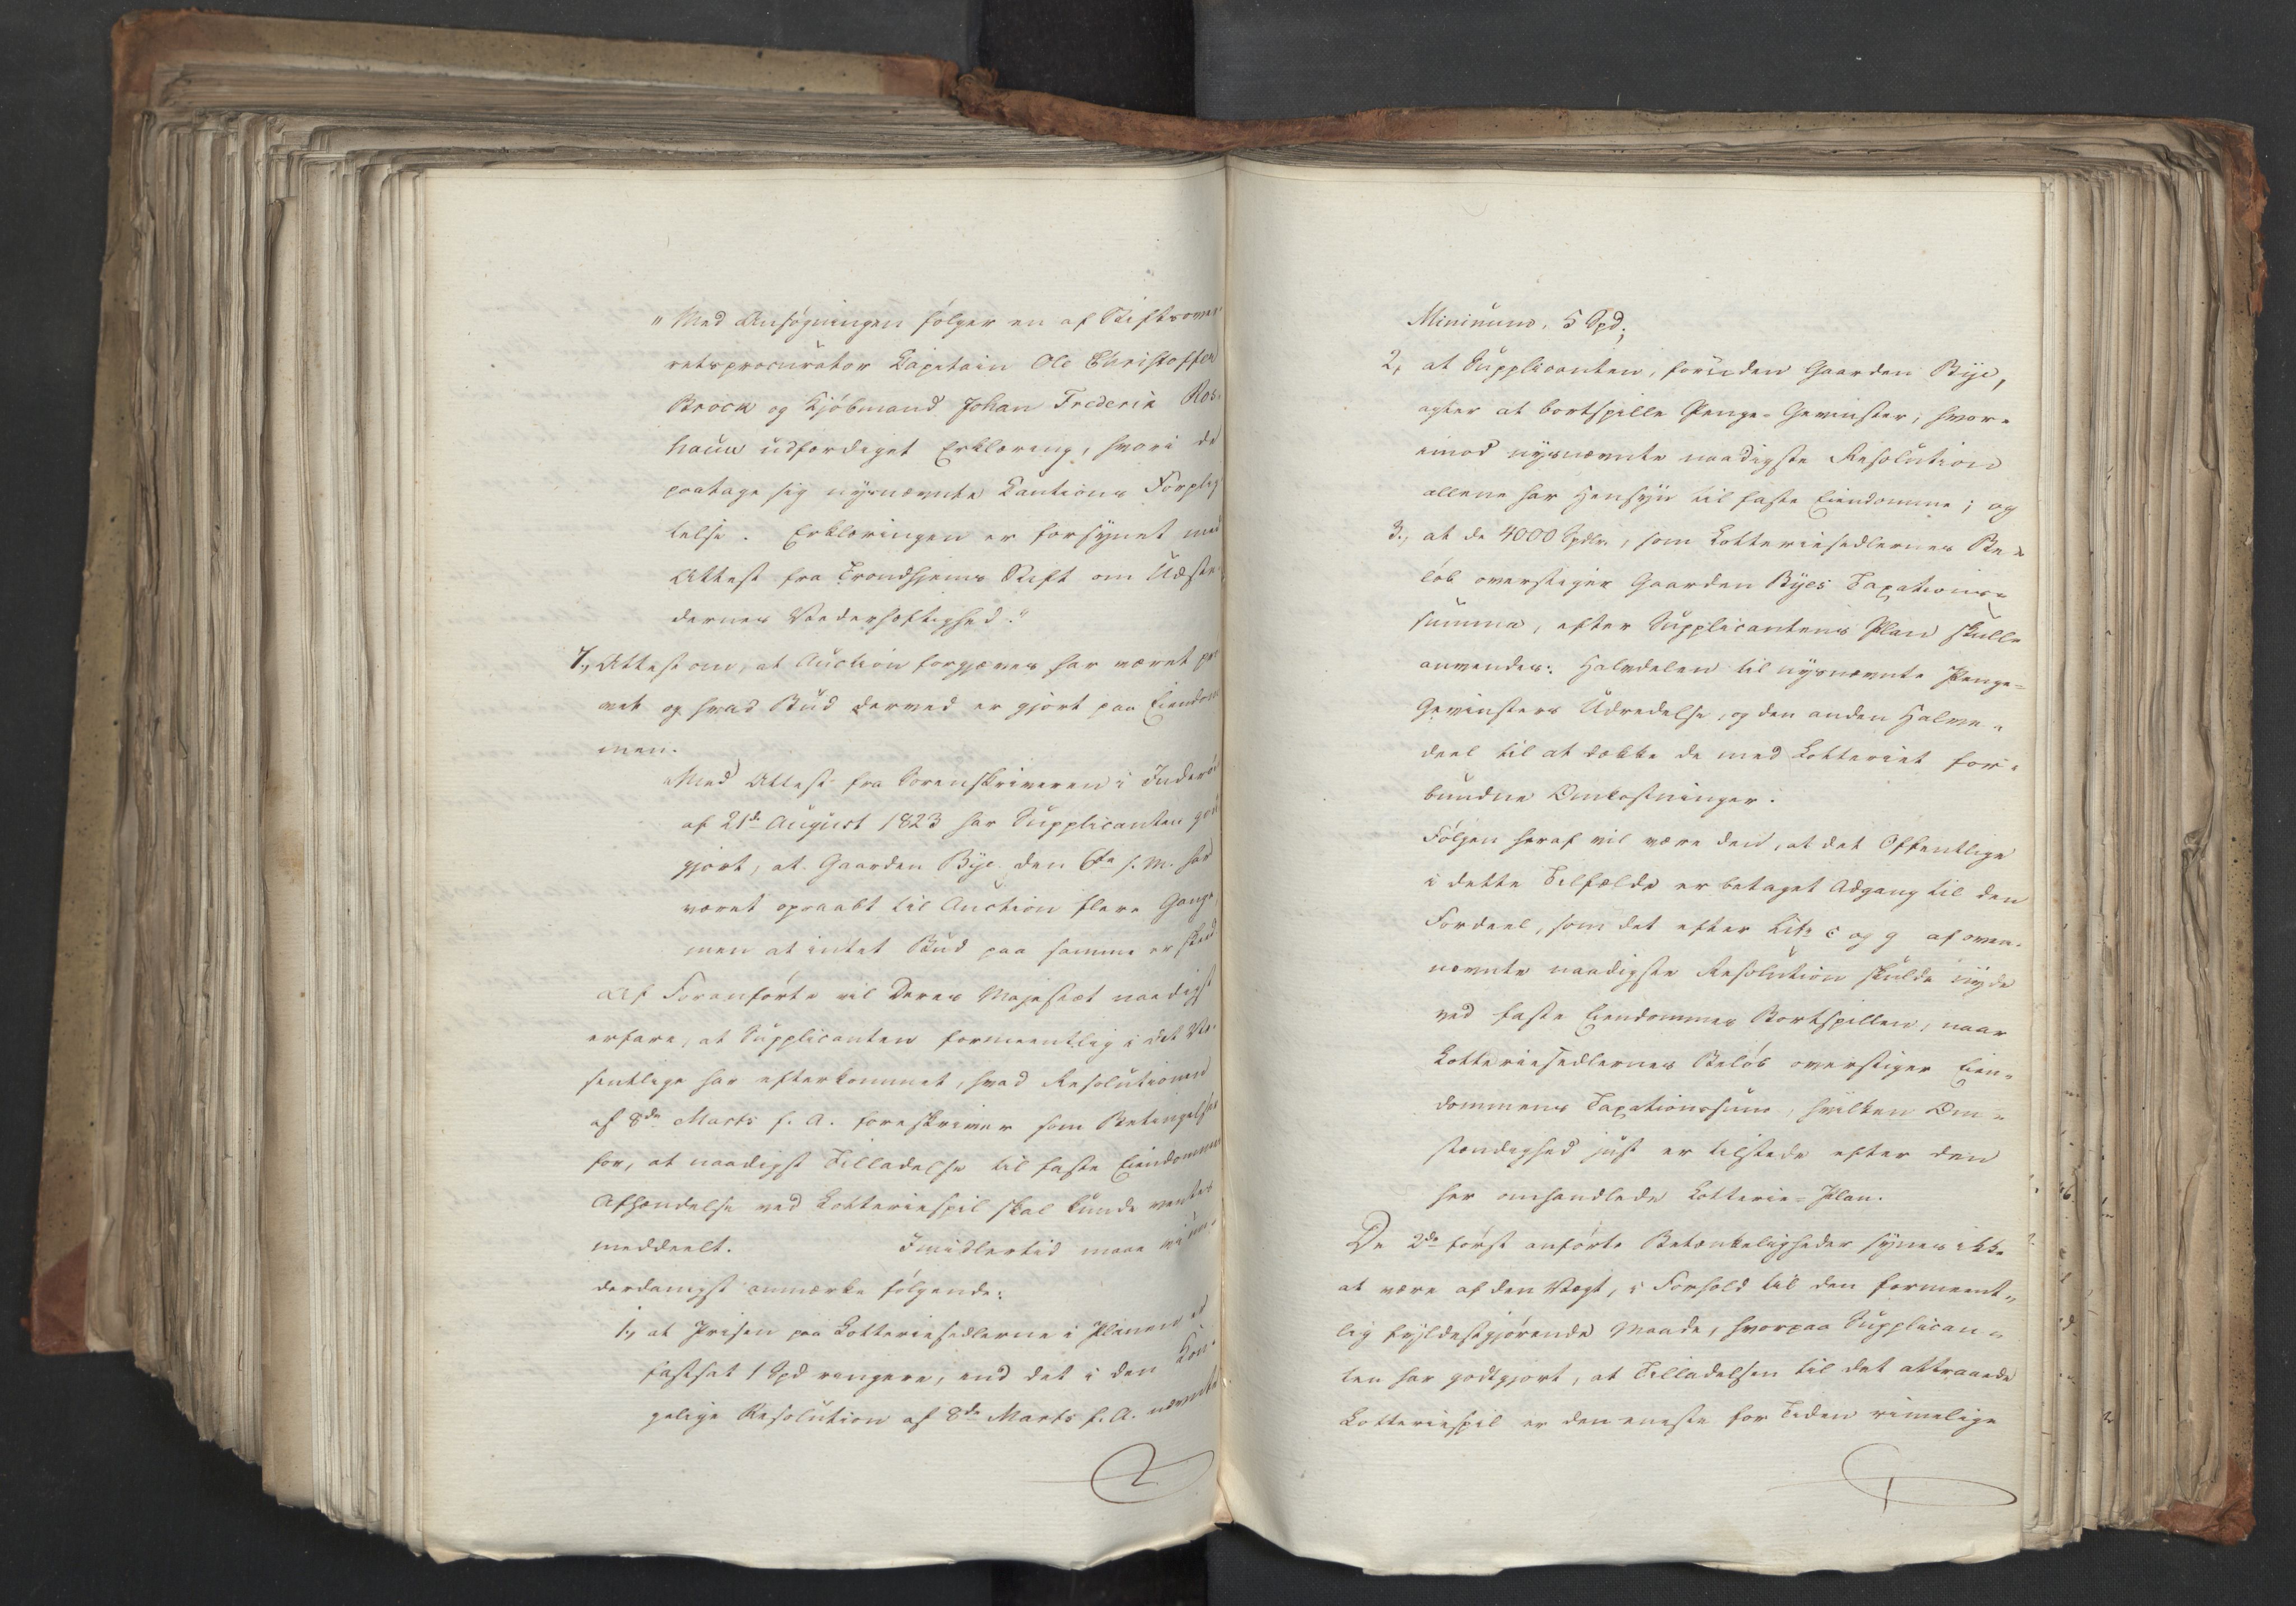 "Med Ansøgningen følger en af Stiftsover-
retsprocurator Capitain Ole Christoffer
Brock og Kjøbmand Johan Frederik Ros-
haüw udfærdiget Erklæring, hvori de
paatage sig nysnævnte Cautions Forplig-
telse. Erklæringen er forsynet med
Attest fra Trondhjems Stift om Udste-
dernes Vederhæftighed."
7., Attest om, at Auction forgjæves har været prø-
vet og hvad Bud derved er gjort paa Eiendom
men.
"Med Attest fra Sorenskriveren i Inderøe
af 21de August 1823 har Supplicanten god
gjort, at Gaarden Bye den 6te s. M. har
været opraabt til Auction flere Gange,
men at intet Bud paa samme er skeed
Af Foranførte vil Deres Majestæt naadigst
erfare, at Supplicanten formeentlig i det Væ-
sentlige har efterkommet, hvad Resolutionen
af 8de Marts f. A. foreskriver som Betingelse
for, at naadigst Tilladelse til faste Eiendomme
Afhændelse ved Lotteriespil skal kunde ventes
meddeelt. Imidlertid maae vi un-
derdanigst anmærke følgende:
1., at Prisen paa Lotteriesedlerne i Planen er
fastsat 1 Spd ringere, end det i den Kon-
gelige Resolution af 8de Marts f. A. nævnte
Minimum, 5 Spd;
2, at Supplicanten, foruden Gaarden Bye,
agter at bortspille Penge-Gevinster; hvor-
imod nysnævnte naadigste Resolution
allene har Hensyn til faste Eiendomme; og
3., at de 4000 Spdlr., som Lotteriesedlernes Be-
løb overstiger Gaarden Byes Taxations-
summa, efter Supplicantens Plan skulle
anvendes: Halvdelen til nysnævnte Penge-
Gevinsters Udredelse, og den anden Halve-
deel til at dække de med Lotteriet for-
bundne Omkostninger.
Følgen heraf vil være den, at det Offentlige
i dette Tilfælde er betaget Adgang til den
Fordeel, som det efter Litr c og g af oven-
nævnte naadigste Resolution skulde nyde
ved faste Eiendommes Bortspillen, naar
Lotteriesedlernes Beløb overstiger Eien-
dommens Taxationssum, hvilken Om-
stændighed just er tilstede efter den
her omhandlede Lotterie-Plan.
De 2de først anførte Betænkeligheder synes ikke
at være af den Vægt, i Forhold til den formeent-
lig fyldestgjørende Maade, hvorpaa Supplican-
ten har godtgjort, at Tilladelsen til det attraaede
Lotteriespil er den eneste for Tiden rimelige